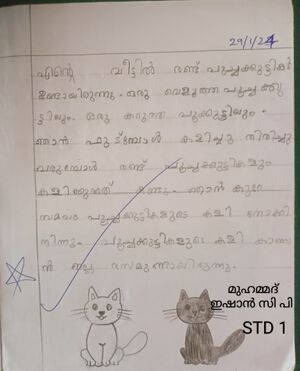 29/1/24
എന്റെ വീട്ടിൽ രണ്ട് പൂച്ചക്കുട്ടികൾ
ഉണ്ടായിരുന്നു. ഒരു വെളുത്ത പൂച്ചക്കു
ട്ടിയും. ഒരു കറുത്ത പൂക്കുട്ടിയും.
ഞാൻ ഫുട്ബോൾ കളിച്ചു തിരിച്ചു
വരുമ്പോൾ രണ്ട് പൂച്ചക്കുട്ടികളും
കളിക്കുന്നത് കണ്ടു. ഞാൻ കുറേ
സമയം പൂച്ചക്കുട്ടികളുടെ കളി നോക്കി
നിന്നു. പൂച്ചക്കുട്ടികളുടെ കളി കാണാ
ൻ നല്ല രസമുണ്ടായിരുന്നു.
മുഹമ്മദ്
ഇഷാൻ സി പി
STD 1